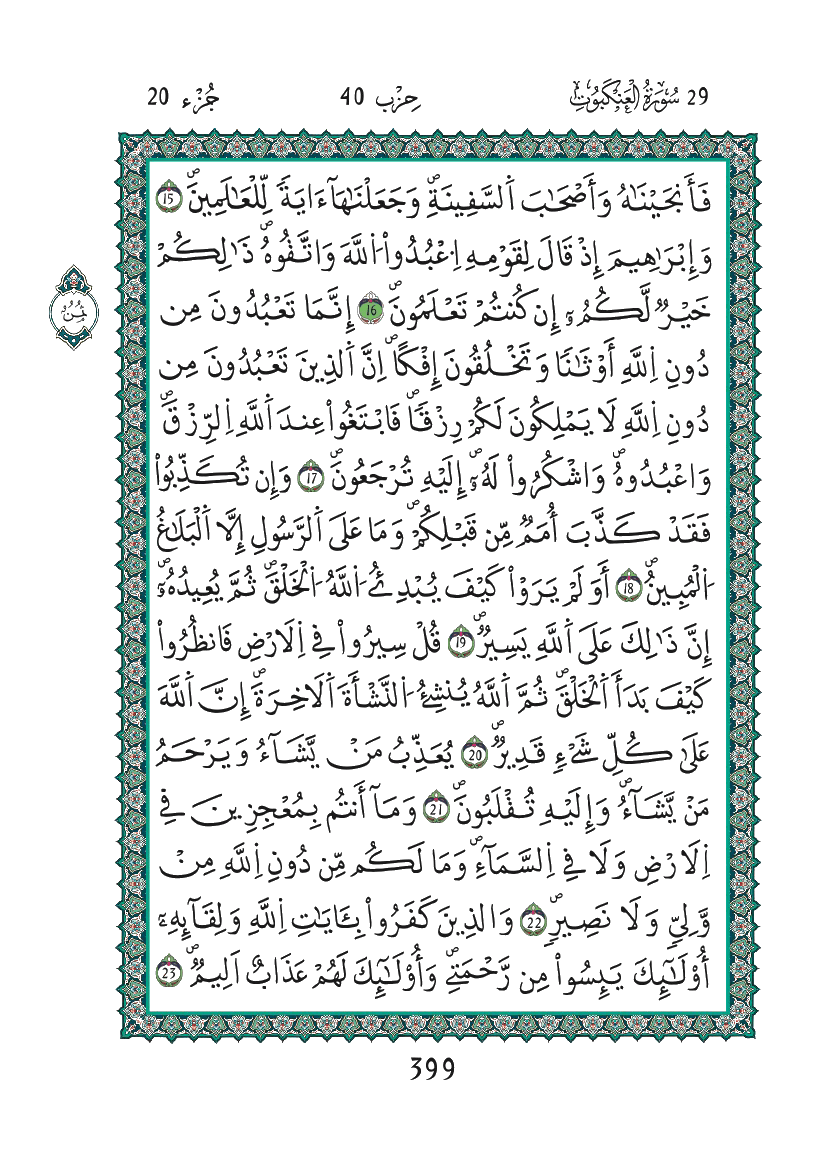 29 سُورَةُ الْعَنكَبُوتِ حِزْب 40 جُزْء 20
فَأَنجَيْنَٰهُ وَأَصْحَٰبَ اَ۬لسَّفِينَةِۖ وَجَعَلْنَٰهَآ ءَايَةٗ لِّلْعَٰلَمِينَۖ 15
وَإِبْرَٰهِيمَ إِذْ قَالَ لِقَوْمِهِ اِ۟عْبُدُواْ اُ۬للَّهَ وَاتَّقُوهُۖ ذَٰلِكُمْ
خَيْرٞ لَّكُمُۥٓ إِن كُنتُمْ تَعْلَمُونَۖ 16 إِنَّمَا تَعْبُدُونَ مِن
دُونِ اِ۬للَّهِ أَوْثَٰنٗا وَتَخْلُقُونَ إِفْكاًۖ اِنَّ اَ۬لذِينَ تَعْبُدُونَ مِن
دُونِ اِ۬للَّهِ لَا يَمْلِكُونَ لَكُمْ رِزْقٗاۖ فَابْتَغُواْ عِندَ اَ۬للَّهِ اِ۬لرِّزْقَۖ
وَاعْبُدُوهُۖ وَاشْكُرُواْ لَهُۥٓ إِلَيْهِ تُرْجَعُونَۖ 17 وَإِن تُكَذِّبُواْ
فَقَدْ كَذَّبَ أُمَمٞ مِّن قَبْلِكُمْۖ وَمَا عَلَى اَ۬لرَّسُولِ إِلَّا اَ۬لْبَلَٰغُ
اُ۬لْمُبِينُۖ 18 أَوَلَمْ يَرَوْاْ كَيْفَ يُبْدِئُ اُ۬للَّهُ اُ۬لْخَلْقَۖ ثُمَّ يُعِيدُهُۥٓۖ
إِنَّ ذَٰلِكَ عَلَى اَ۬للَّهِ يَسِيرٞۖ 19 قُلْ سِيرُواْ فِے اِ۬لَارْضِ فَانظُرُواْ
كَيْفَ بَدَأَ اَ۬لْخَلْقَۖ ثُمَّ اَ۬للَّهُ يُنشِئُ اُ۬لنَّشْأَةَ اَ۬لَاخِرَةَۖ إِنَّ اَ۬للَّهَ
عَلَىٰ كُلِّ شَےْءٖ قَدِيرٞۖ 20 يُعَذِّبُ مَنْ يَّشَآءُ وَيَرْحَمُ
مَنْ يَّشَآءُۖ وَإِلَيْهِ تُقْلَبُونَۖ 21 وَمَآ أَنتُم بِمُعْجِزِينَ فِے
اِ۬لَارْضِ وَلَا فِے اِ۬لسَّمَآءِۖ وَمَا لَكُم مِّن دُونِ اِ۬للَّهِ مِنْ
وَّلِيّٖ وَلَا نَصِيرٖۖ 22 وَالذِينَ كَفَرُواْ بِـَٔايَٰتِ اِ۬للَّهِ وَلِقَآئِهِۦٓ
أُوْلَٰٓئِكَ يَئِسُواْ مِن رَّحْمَتِےۖ وَأُوْلَٰٓئِكَ لَهُمْ عَذَابٌ اَلِيمٞۖ 23
ثُمُن
399